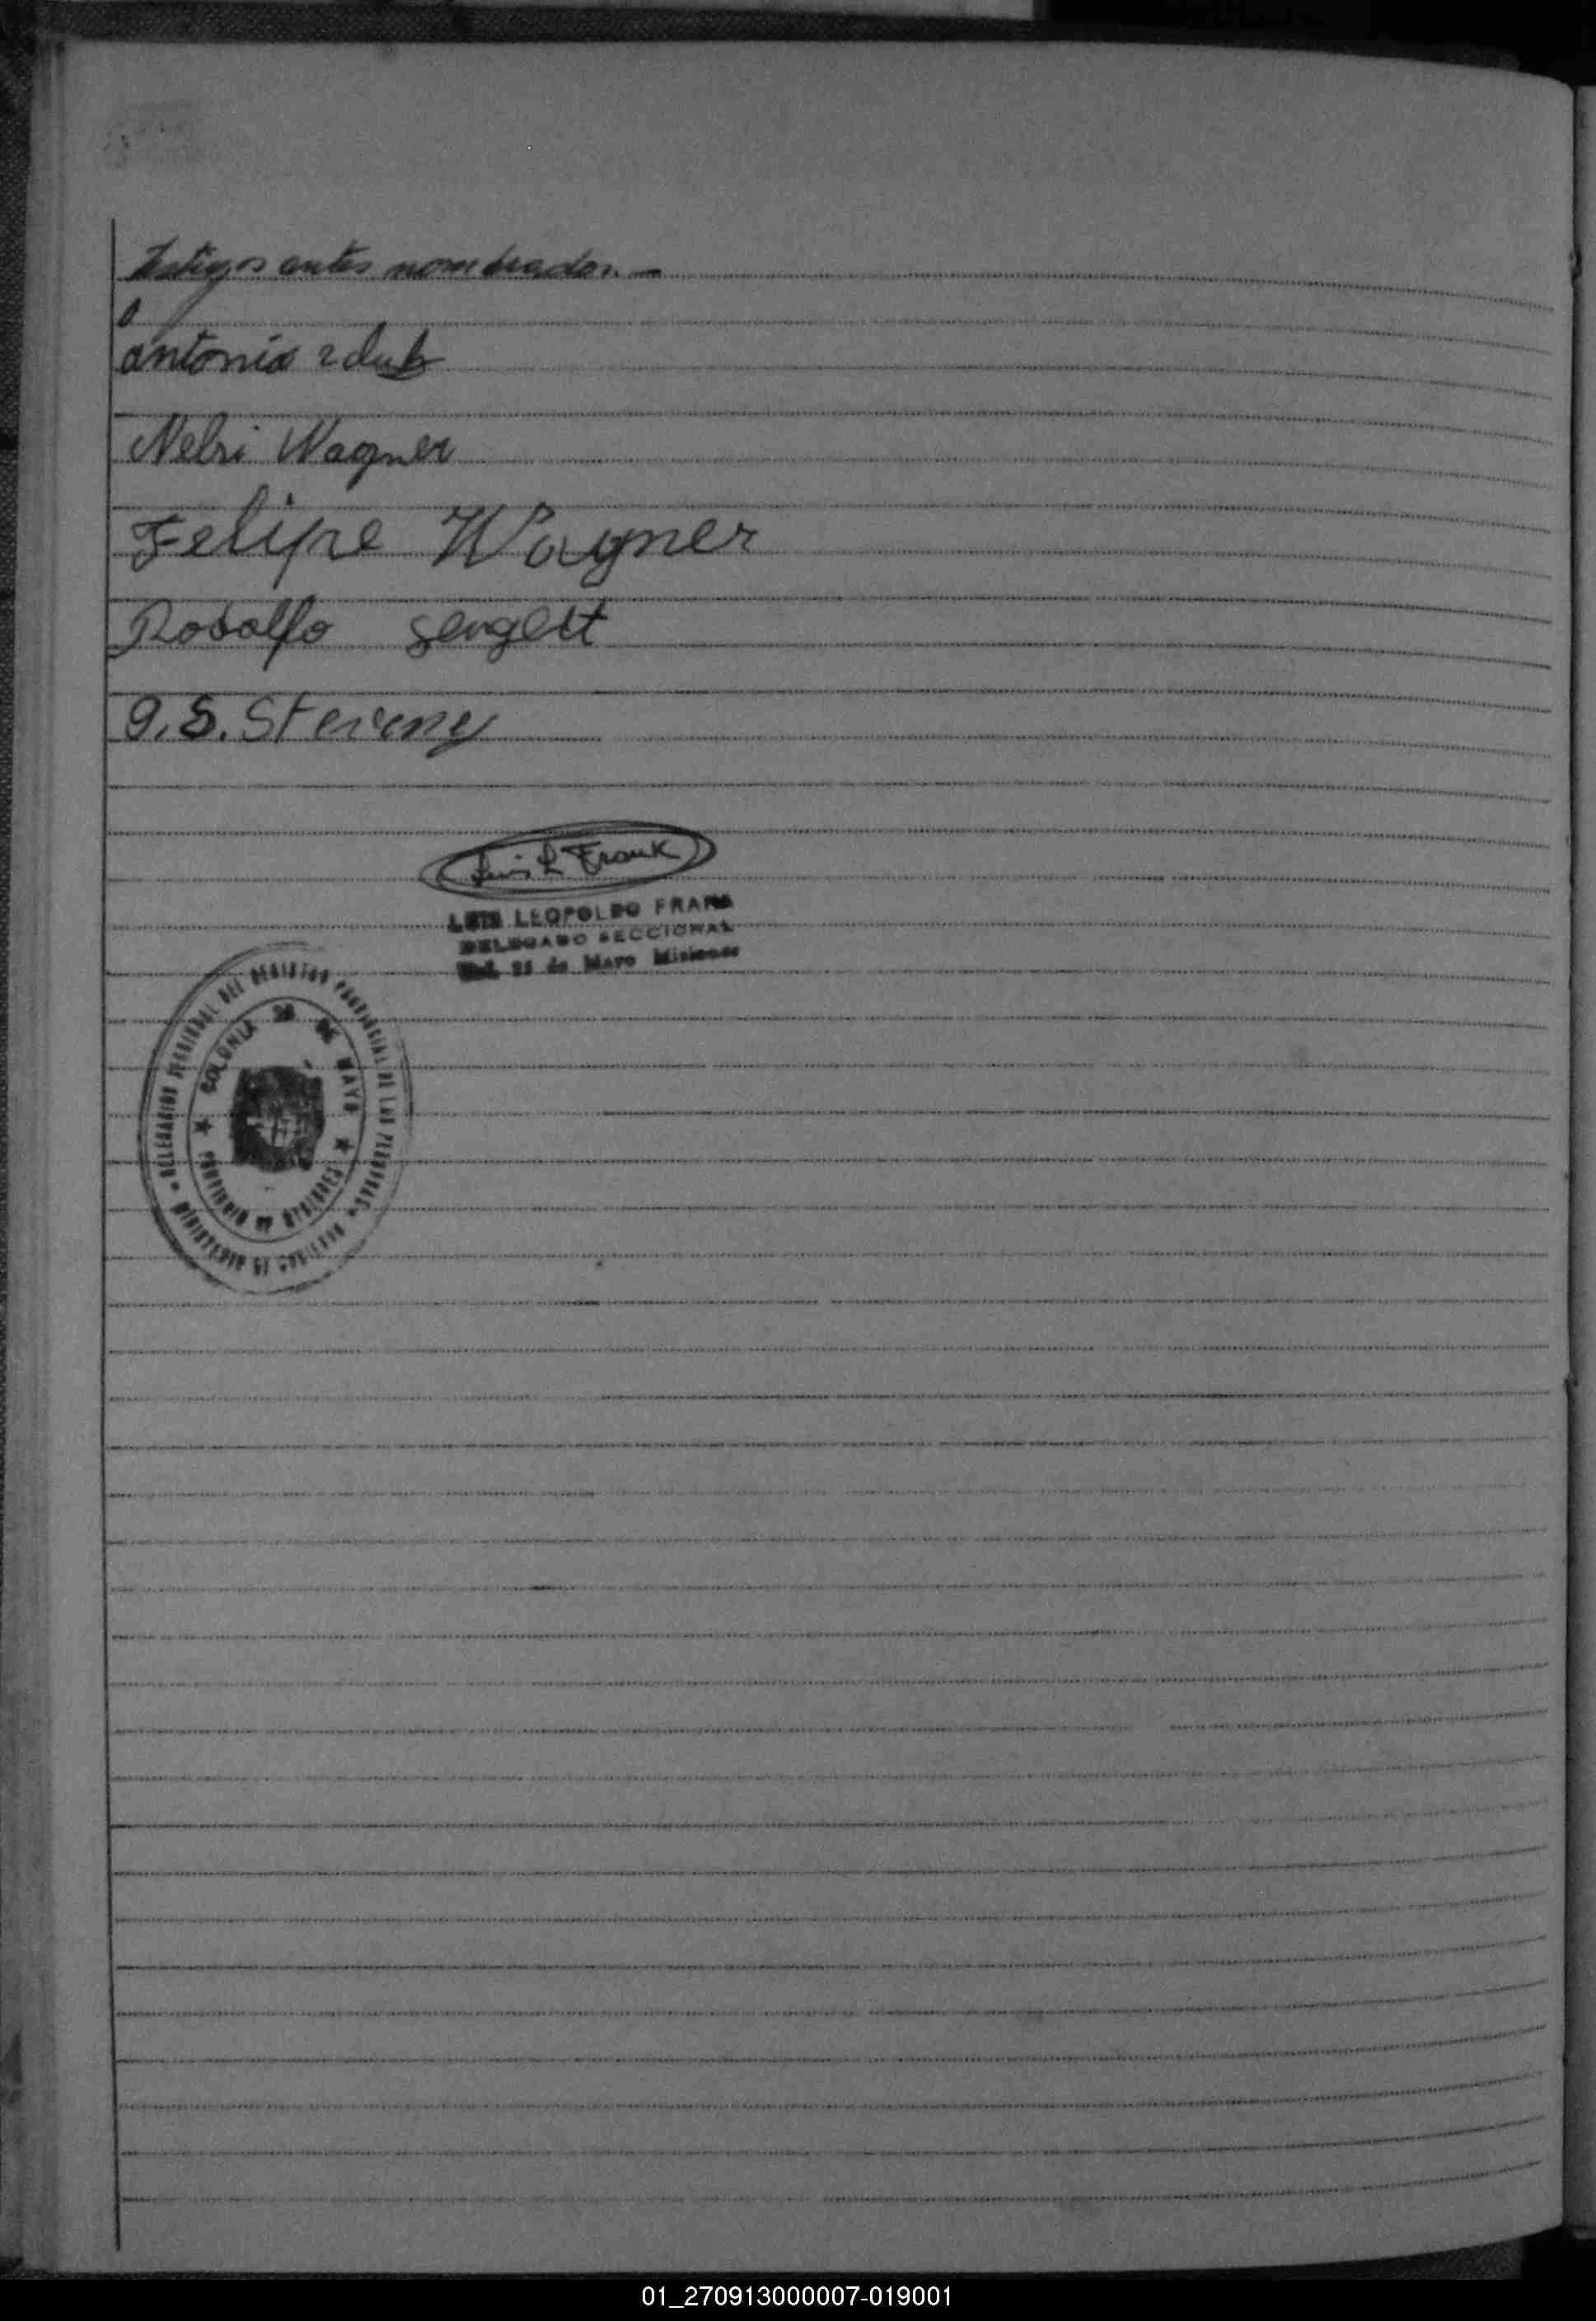 Testigos antes nombrados. —
antonio zdub
Nelsi Wagner
Felipe Wagner
Rodolfo sengelt
G. S. Stevens
Luis L Frank
LUIS LEOPOLDO FRANK
DELEGADO SECCIONAL
Col. 25 de Mayo Misiones
DELEGACION SECCIONAL DEL REGISTRO PROVINCIAL DE LAS PERSONAS
MINISTERIO DE GOBIERNO
COLONIA 25 DE MAYO
PROVINCIA DE MISIONES
01_270913000007-019001